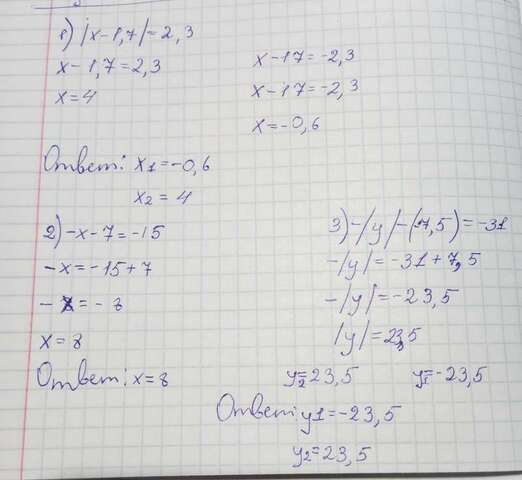 1) |x-1,7|=2,3
x-1,7=2,3
x=4
x-17=-2,3
x-17=-2,3
x=-0,6
Ответ: x1=-0,6
x2=4
2) -x-7=-15
-x=-15+7
-x=-8
x=8
Ответ: x=8
3) -|y|-(7,5)=-31
-|y|=-31+7,5
-|y|=-23,5
|y|=23,5
y2=23,5 y1=-23,5
Ответ: y1=-23,5
y2=23,5